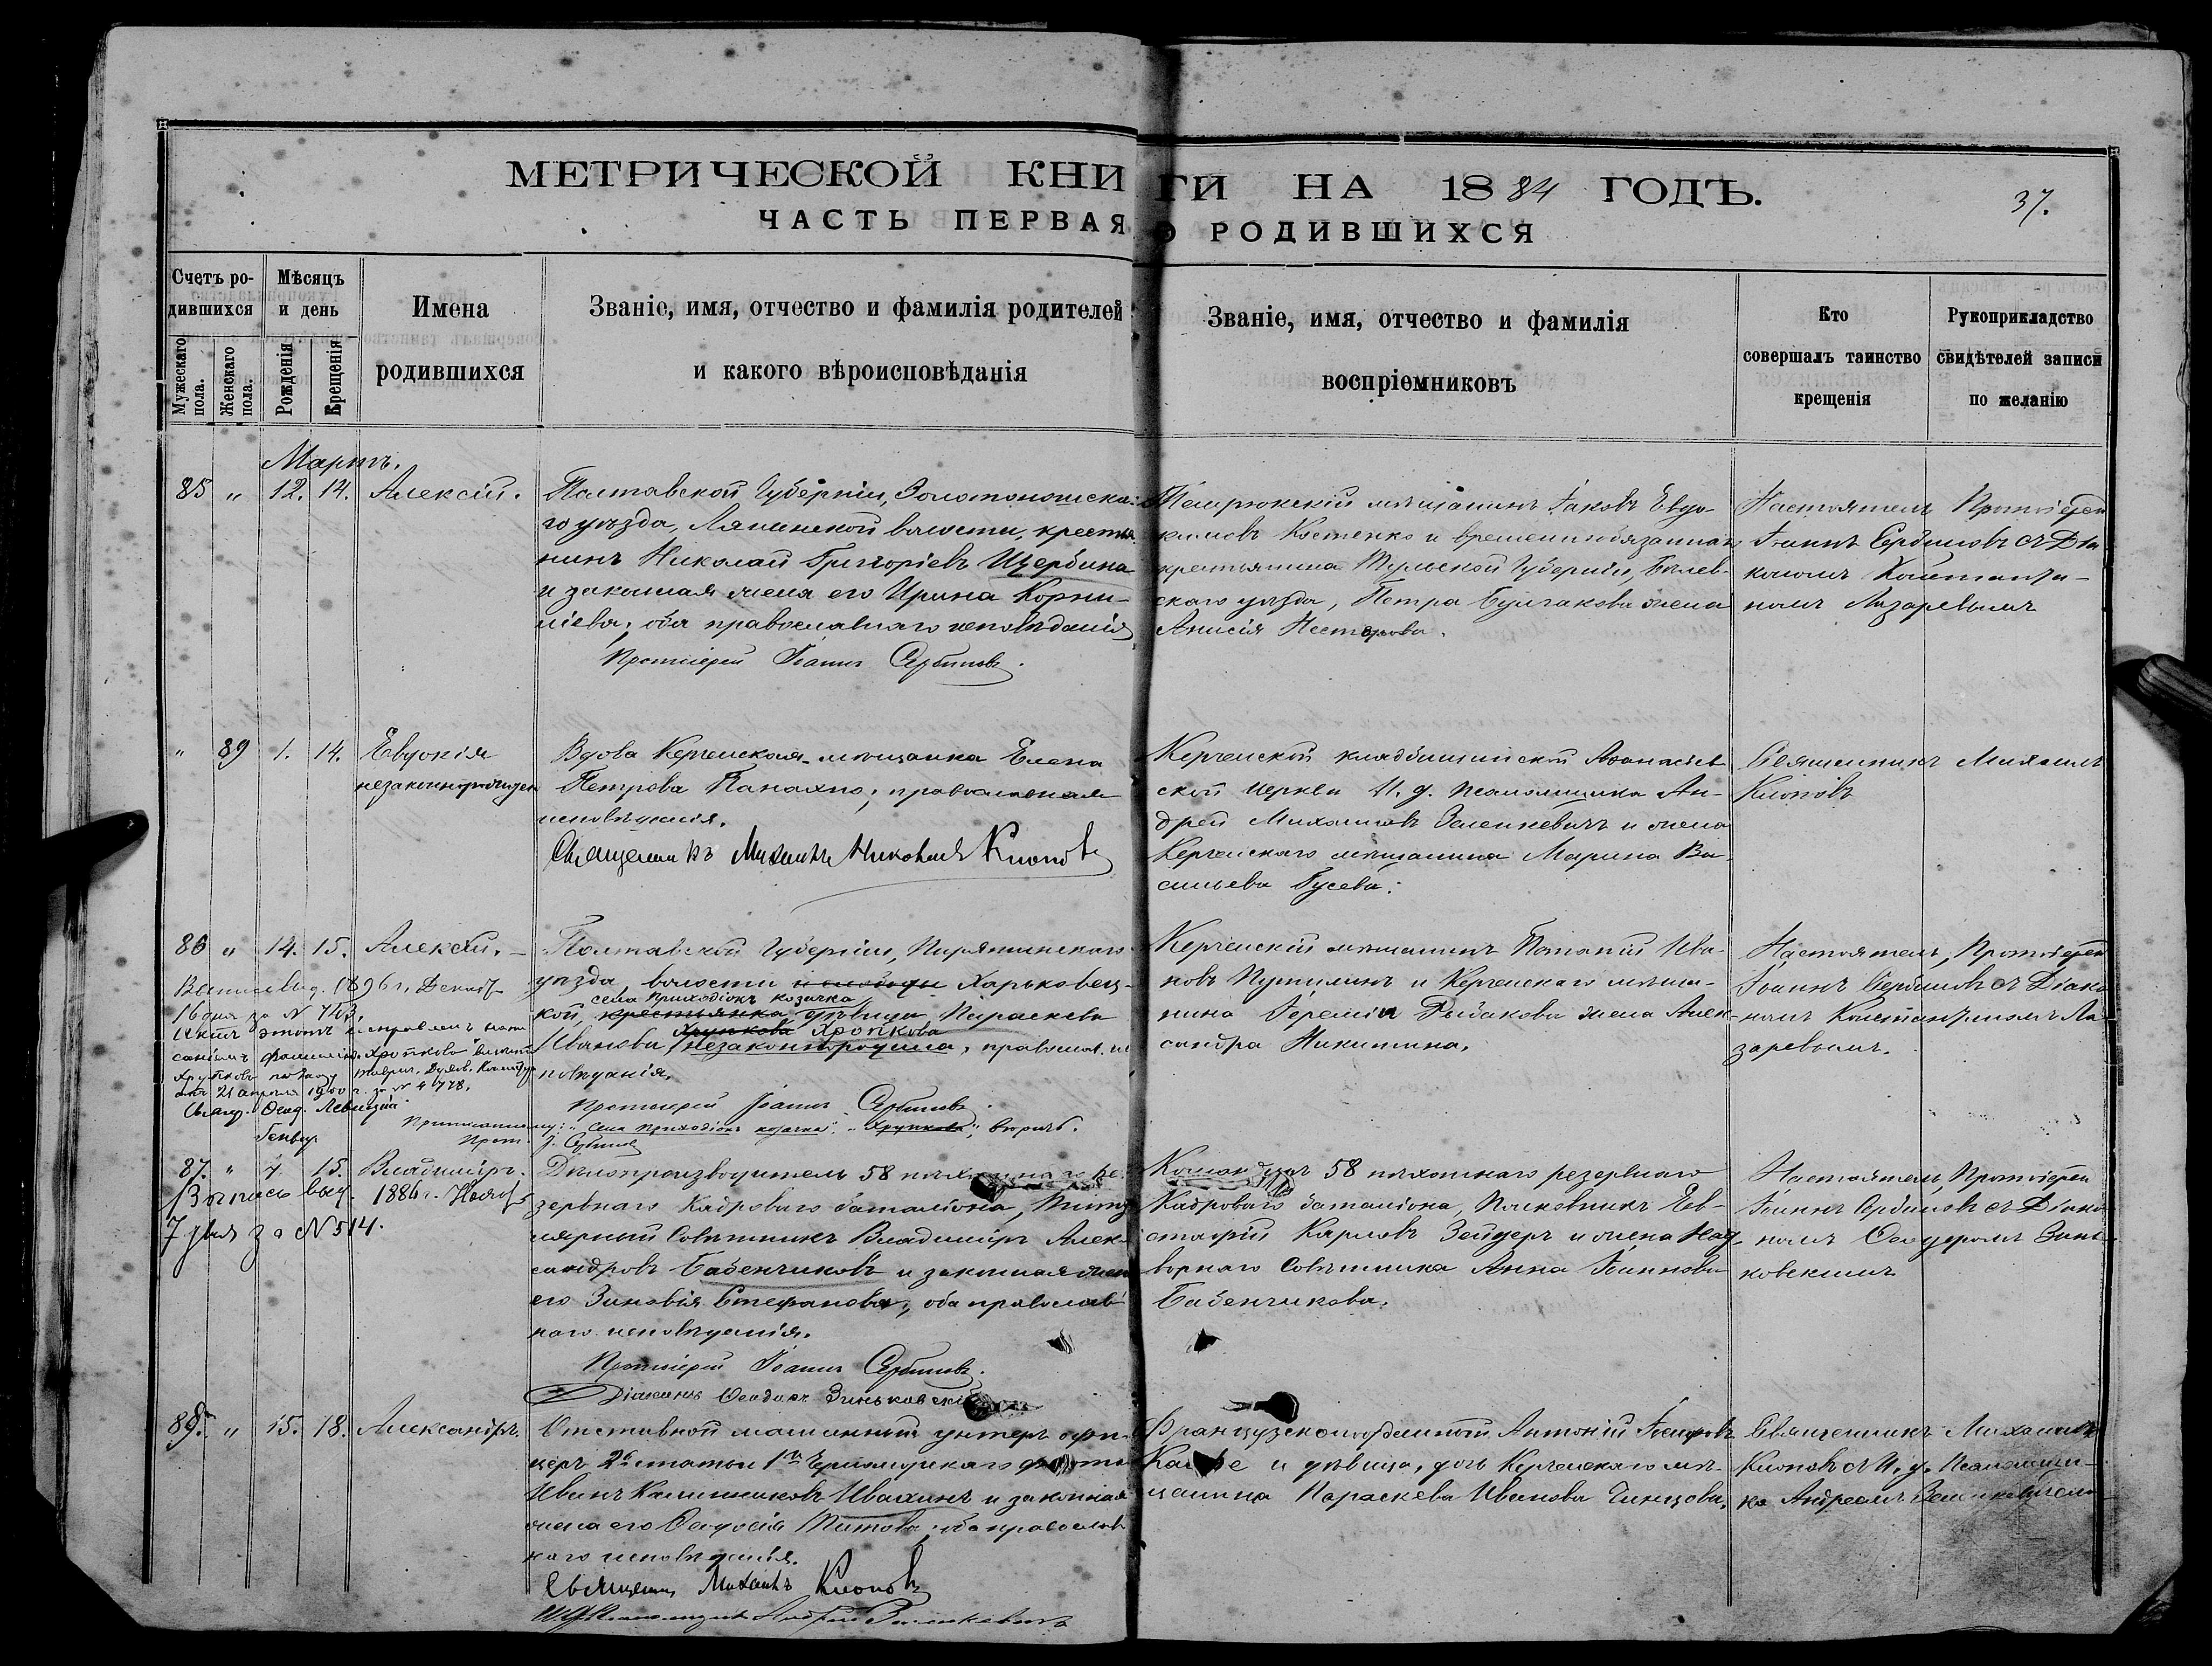 МЕТРИЧЕСКОЙ КНИГИ НА 1884 ГОДЪ.
37.
ЧАСТЬ ПЕРВАЯ О РОДИВШИХСЯ
Счетъ родившихся
Мужескаго пола.
Женскаго пола.
Мѣсяцъ и день
Рожденія
Крещенія
Имена
родившихся
Званіе, имя, отчество и фамилія родителей
и какого вѣроисповѣданія
Званіе, имя, отчество и фамилія
воспріемниковъ
Кто
совершалъ таинство
крещенія
Рукоприкладство
свидѣтелей записи
по желанію
Мартъ.
85 " 12. 14. Алексій.
Полтавской Губерніи, Золотоношска-
го уѣзда, Ляпинской волости, крестья-
нинъ Николай Григоріевъ Щербина
и законная жена его Ирина Корни-
ліева, оба православнаго исповѣданія
Протоіерей Іоаннъ Сербиновъ.
Темрюкскій мѣщанинъ Іаковъ Евдо-
кимовъ Костенко и временнообязаннаго
крестьянина Тульской Губерніи, Бѣлев-
скаго уѣзда, Петра Булгакова жена
Анисія Нестерова.
Настоятель Протоіерей
Іоаннъ Сербиновъ съ Діа-
кономъ Константи-
номъ Лазаревымъ
" 89 1. 14. Евдокія
незаконнорожден
Вдова Керченская мѣщанка Елена
Петрова Панахно; православнаго
исповѣданія.
Священникъ Михаилъ Николаевъ Клоповъ
Керченской кладбищинской Аѳанасіев-
ской церкви И. д. псаломщика Ан-
дрей Михаиловъ Зеленкевичъ и жена
Керченскаго мѣщанина Марина Ва-
сильева Гусева.
Священникъ Михаилъ
Клоповъ
86 " 14. 15. Алексій.
Полтавской Губерніи, Пирятинскаго
уѣзда, волости и слободы Харьковец-
села Приходіокъ козачка
кой, крестьянка дѣвица Параскева
Хрупкова Хропкова
Иванова, незаконнорождена, православ. ис
повѣданія.
Протоіерей Іоаннъ Сербиновъ.
"села Приходіокъ козачка", "Хрупкова", вѣрить.
Прот. І. Сербиновъ
Выпись выд. 1896 г. Декаб.
16 дня за N 743.
21 апрѣля 1900 г. за N 4778.
Свящ. Ѳеод. Левицкій
Керченскій мѣщанинъ Потапій Ива-
новъ Путилинъ и Керченскаго мѣща-
нина Іереміи Рыбакова жена Алек-
сандра Никитина.
Настоятель, Протоіерей
Іоаннъ Сербиновъ съ Діако-
номъ Константиномъ Ла-
заревымъ.
Генвар.
87. " 7. 15. Владиміръ.
Выпись выд. 1886 г. Нояб.
7 дня за N 514.
Дѣлопроизводитель 58 пѣхотнаго ре-
зервнаго Кадроваго баталіона, Титу-
лярный Совѣтникъ Владиміръ Алек-
сандровъ Бабенчиковъ и законная жена
его Зиновія Стефанова, оба православ-
наго исповѣданія.
Протоіерей Іоаннъ Сербиновъ.
Діаконъ Ѳеодоръ Зиньковскій
Командиръ 58 пѣхотнаго резервнаго
Кадроваго баталіона, Полковникъ Ев-
стафій Карловъ Зейдеръ и жена Над-
ворнаго Совѣтника Анна Іоаннова
Бабенчикова.
Настоятель, Протоіерей
Іоаннъ Сербиновъ съ Діако-
номъ Ѳеодоромъ Зинь-
ковскимъ
88. " 15. 18. Александръ.
Отставной машинный унтеръ офи-
церъ 2й статьи 1го Черноморскаго флота
Иванъ Калинниковъ Ивахинъ и законная
жена его Ѳеодосія Титова, оба православ-
наго исповѣданія.
Священ. Михаилъ Клоповъ
И. д. Псаломщика Андрей Зеленкевичъ
Французскоподданный Антоній Іосифовъ
и дѣвица, дочь Керченскаго мѣ-
щанина Параскева Иванова Чинцова.
Священникъ Михаилъ
Клоповъ съ И. д. Псаломщи-
ка Андреемъ Зеленкевичемъ